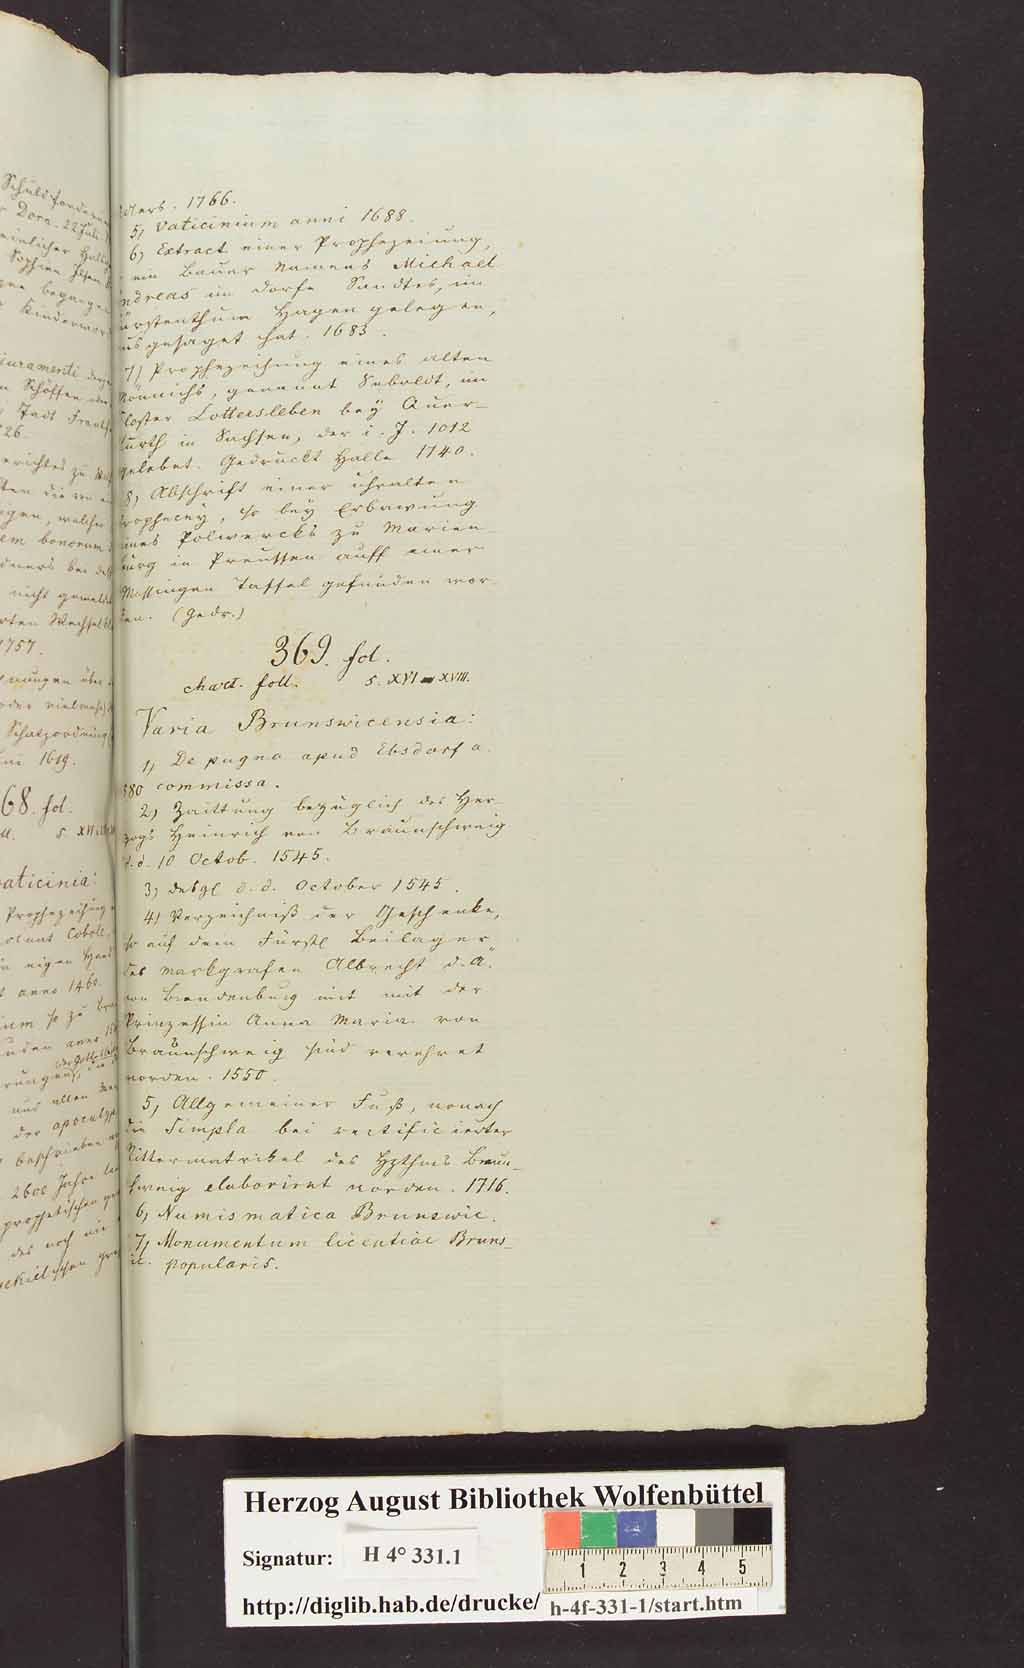 Schuld
Dorn. 22 Juli
Sophien
begangen
Kindermor
juramenti
Schöffen
Stadt
26.
erichtes zu
ten die
welcher
em bonorum
nicht gemeldet
rten Wechsel
1757.
nungen über
oder vielmehr
Schatzordnung
1619.
68. fol.
ll. s. XVI
vaticinia:
Prophezeihung
in eigen Hand
anno 1460.
so zu
anno
aus allen
der apocalyp
beschrieben
2600 Jahre
prophetischen
des noch nie
ekielischen
cters. 1766.
5, Vaticinium anni 1688.
6, Extract einer Prophezeiung,
ein Bauer Namens Michael
Andreas im Dorfe Sandtes, im
ürstenthum Hagen gelegen,
usgesaget hat. 1683.
7, Prophezeihung eines alten
Mönnichs, genannt Seboldt, im
Closter Lottersleben bey Quer-
furth in Sachsen, der i. J. 1012
gelebet. Gedruckt Halle 1740.
8, Abschrift einer uhralten
Prophecey, so bey Erbawung
eines Polwercks zu Marien-
burg in Preussen auff einer
Messingen Taffel gefunden wor-
den. (Gedr.)
369. fol.
chart. foll. s. XVI - XVIII.
Varia Brunswicensia:
1, De pugna apud Ebsdorf a.
880 commissa.
2, Zaittung bezüglich des Her-
zogs Heinrich von Braunschweig
d. d. 10 Octob. 1545.
3, desgl d. d. October 1545.
4, Verzeichniß der Geschenke,
so auf dem Fürstl Beilager
des Markgrafen Albrecht d. Ä.
von Brandenburg mit mit der
Prinzessin Anna Maria von
Braunschweig sind verehret
worden. 1550.
5, Allgemeiner Fuß, wonach
die Simpla bei rectificierter
Rittermatrikel des Hzthms Braun-
schweig elaboriret worden. 1716.
6, Numismatica Brunswic.
7, Monumentum licentiae Bruns-
ic. popularis.
Herzog August Bibliothek Wolfenbüttel
Signatur: H 4° 331.1
1 2 3 4 5
http://diglib.hab.de/drucke/ h-4f-331-1/start.htm